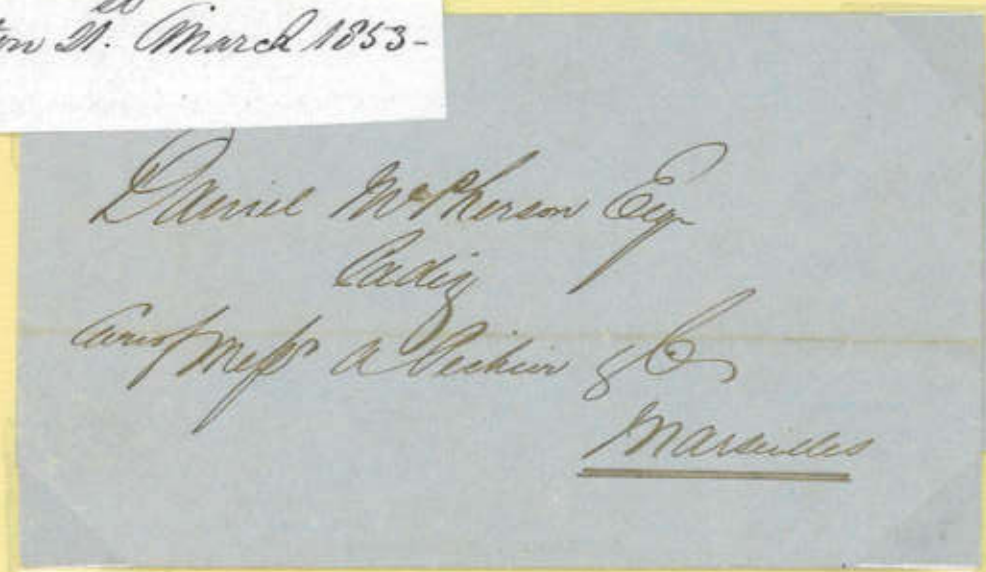 on 21st March 1853-
Daniel McPherson Esqr
Cadiz
Care of Messrs A & Co
Marseilles